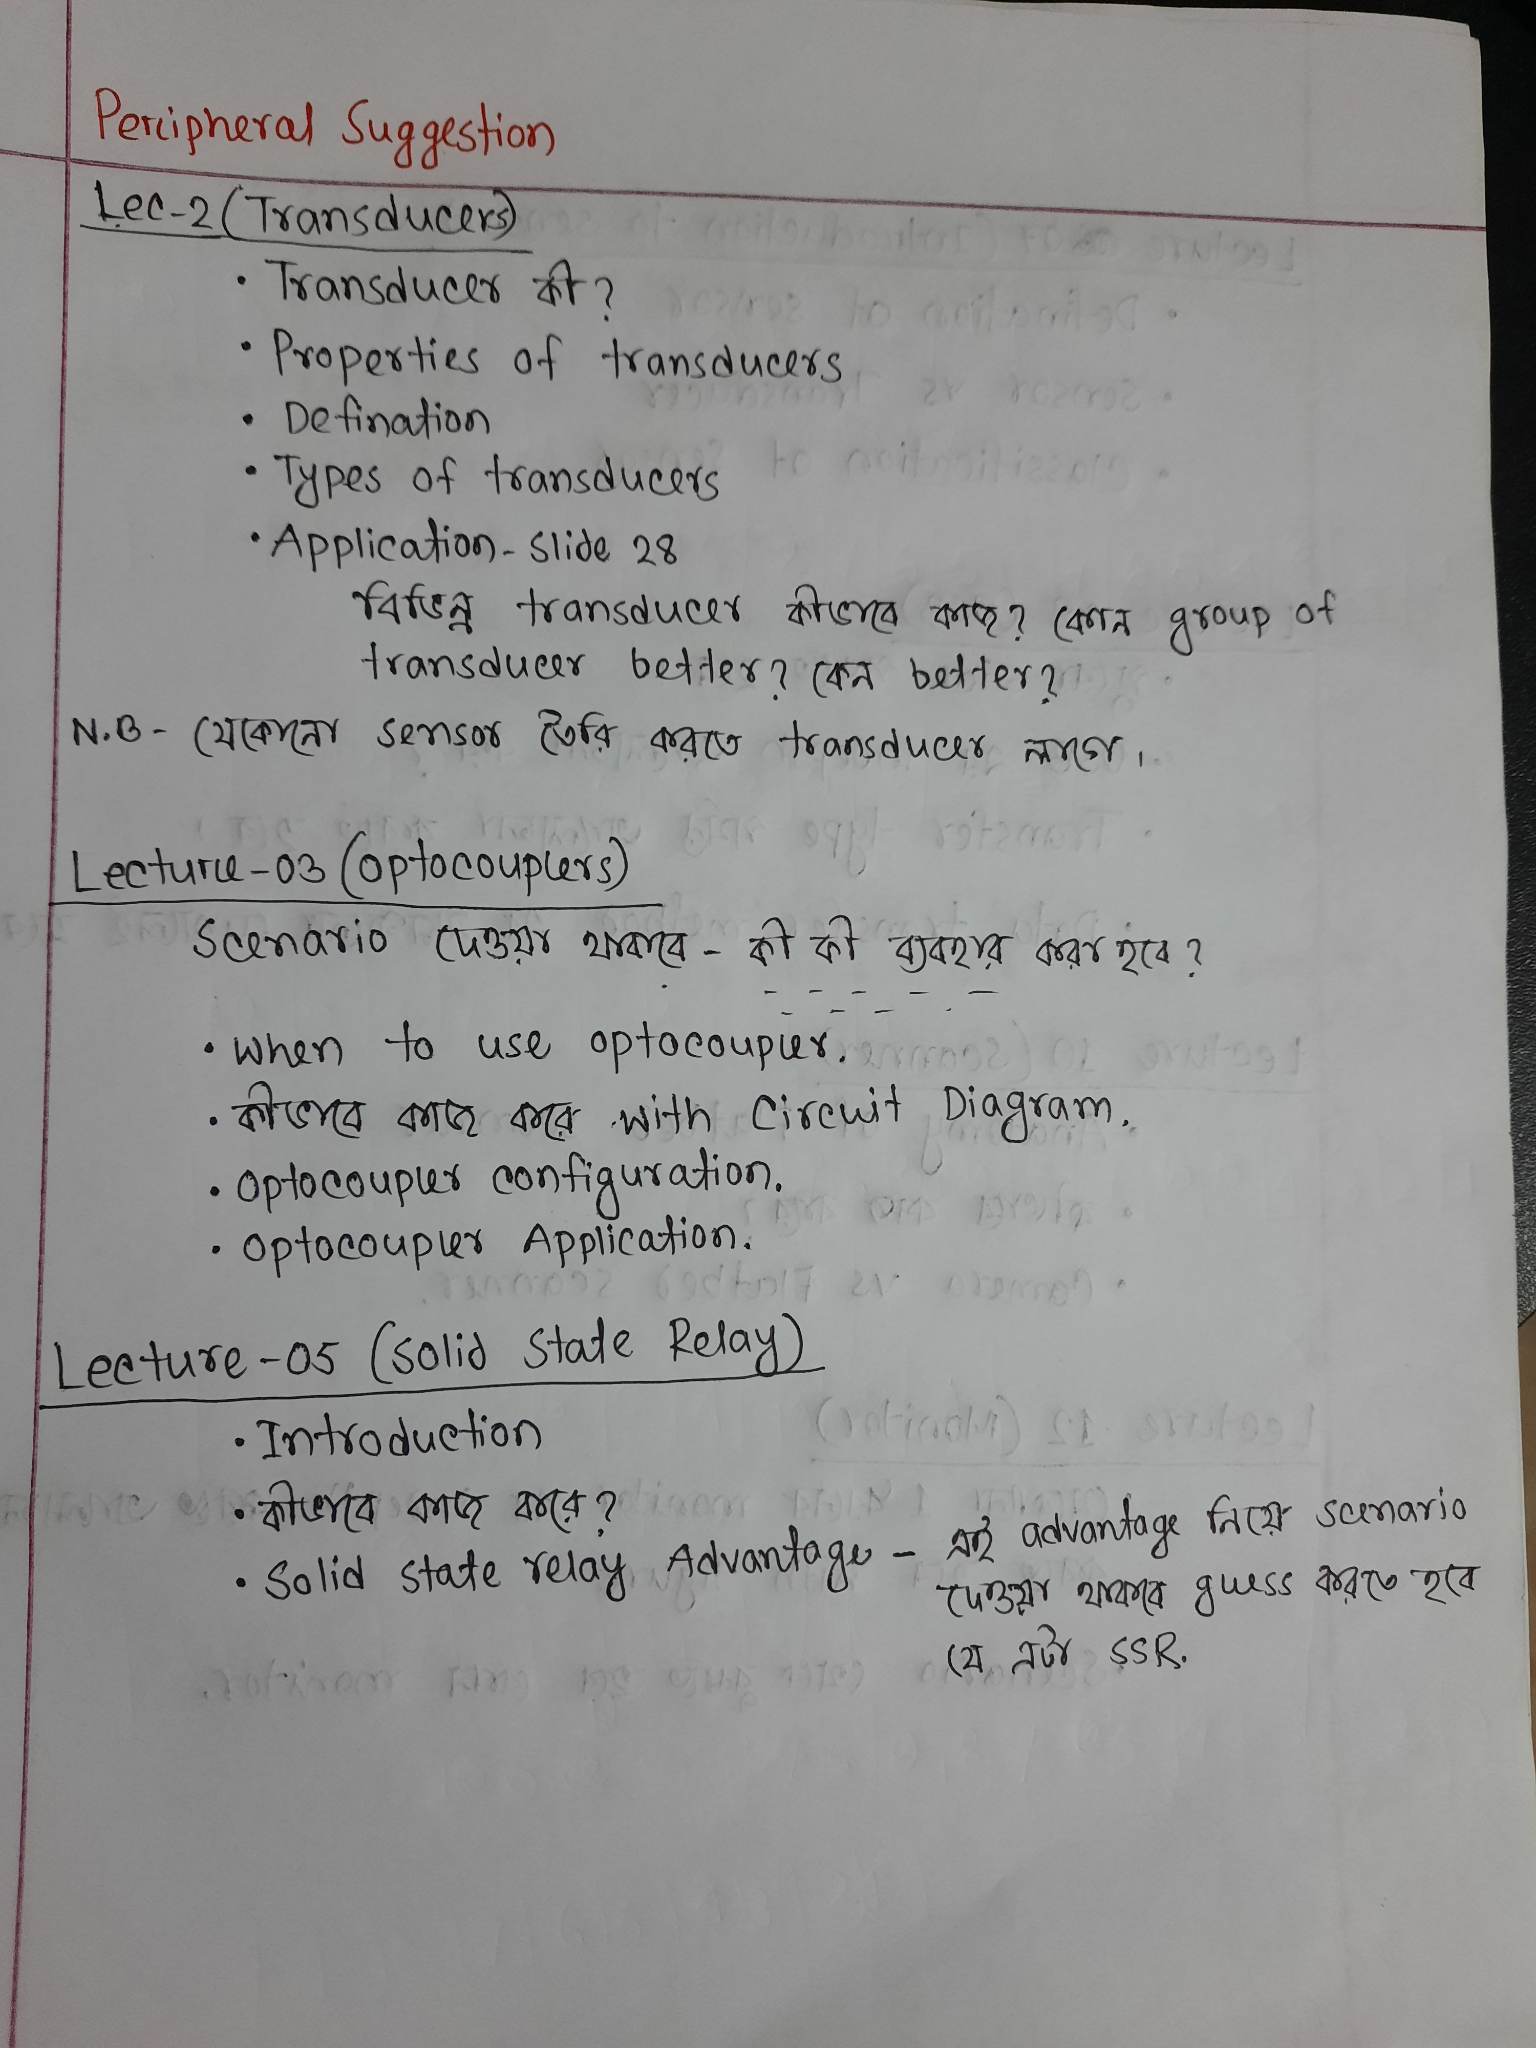 Peripheral Suggestion
Lec-2 (Transducers)
• Transducer কী?
• Properties of transducers
• Defination
• Types of transducers
• Application - Slide 28
বিভিন্ন transducer কীভাবে কাজ? কোন group of
transducer better? কেন better?
N.B - যেকোনো sensor তৈরি করতে transducer লাগে।
Lecture-03 (Optocouplers)
Scenario দেওয়া থাকবে - কী কী ব্যবহার করা হবে?
• When to use optocoupler.
• কীভাবে কাজ করে with Circuit Diagram.
• Optocoupler configuration.
• Optocoupler Application.
Lecture-05 (Solid State Relay)
• Introduction
• কীভাবে কাজ করে?
• Solid state relay Advantage - এই advantage নিয়ে scenario
দেওয়া থাকবে guess করতে হবে
যে এটা SSR.